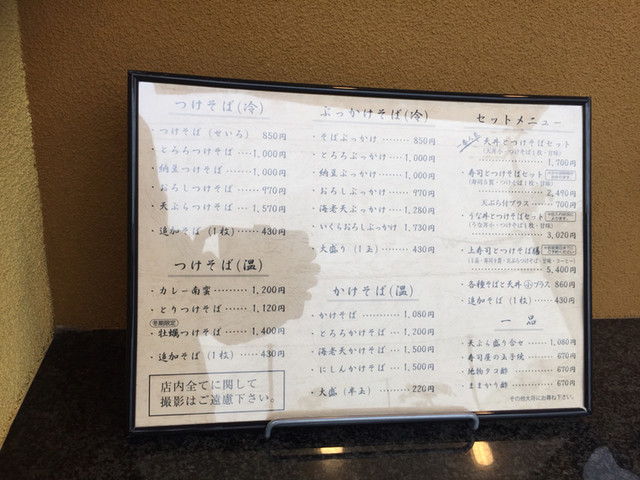 つけそば(冷)
・つけそば (せいろ) 850円
・とろろつけそば … 1,000円
・納豆つけそば …… 1,000円
・おろしつけそば …… 970円
・天ぷらつけそば … 1,570円
・追加そば (1枚) …… 430円
つけそば(温)
・カレー南蛮 ……… 1,200円
・とりつけそば …… 1,120円
冬期限定
・牡蠣つけそば …… 1,400円
・追加そば (1枚) …… 430円
店内全てに関して
撮影はご遠慮下さい。
ぶっかけそば(冷)
・そばぶっかけ ……… 850円
・とろろぶっかけ …… 1,000円
・納豆ぶっかけ …… 1,000円
・おろしぶっかけ …… 970円
・海老天ぶっかけ … 1,280円
・いくらおろしぶっかけ … 1,730円
・大盛り (1玉) …… 430円
かけそば(温)
・かけそば ………… 1,080円
・とろろかけそば …… 1,200円
・海老天かけそば … 1,500円
・にしんかけそば … 1,500円
・大盛 (半玉) ……… 220円
セットメニュー
天丼とつけそばセット
(天丼小・つけそば1枚・甘味)
1,700円
・寿司とつけそばセット
2,490円
天ぷら付プラス …… 700円
・うな丼とつけそばセット
(うな丼小・つけそば1枚・甘味)
3,020円
・上寿司とつけそば膳
5,400円
・各種そばと天丼小プラス 860円
・追加そば (1枚) …… 430円
一品
・天ぷら盛り合せ … 1,080円
・寿司屋の玉子焼 …… 670円
・地物タコ酢 ……… 670円
・ままかり酢 ……… 670円
その他大将にお尋ね下さい。